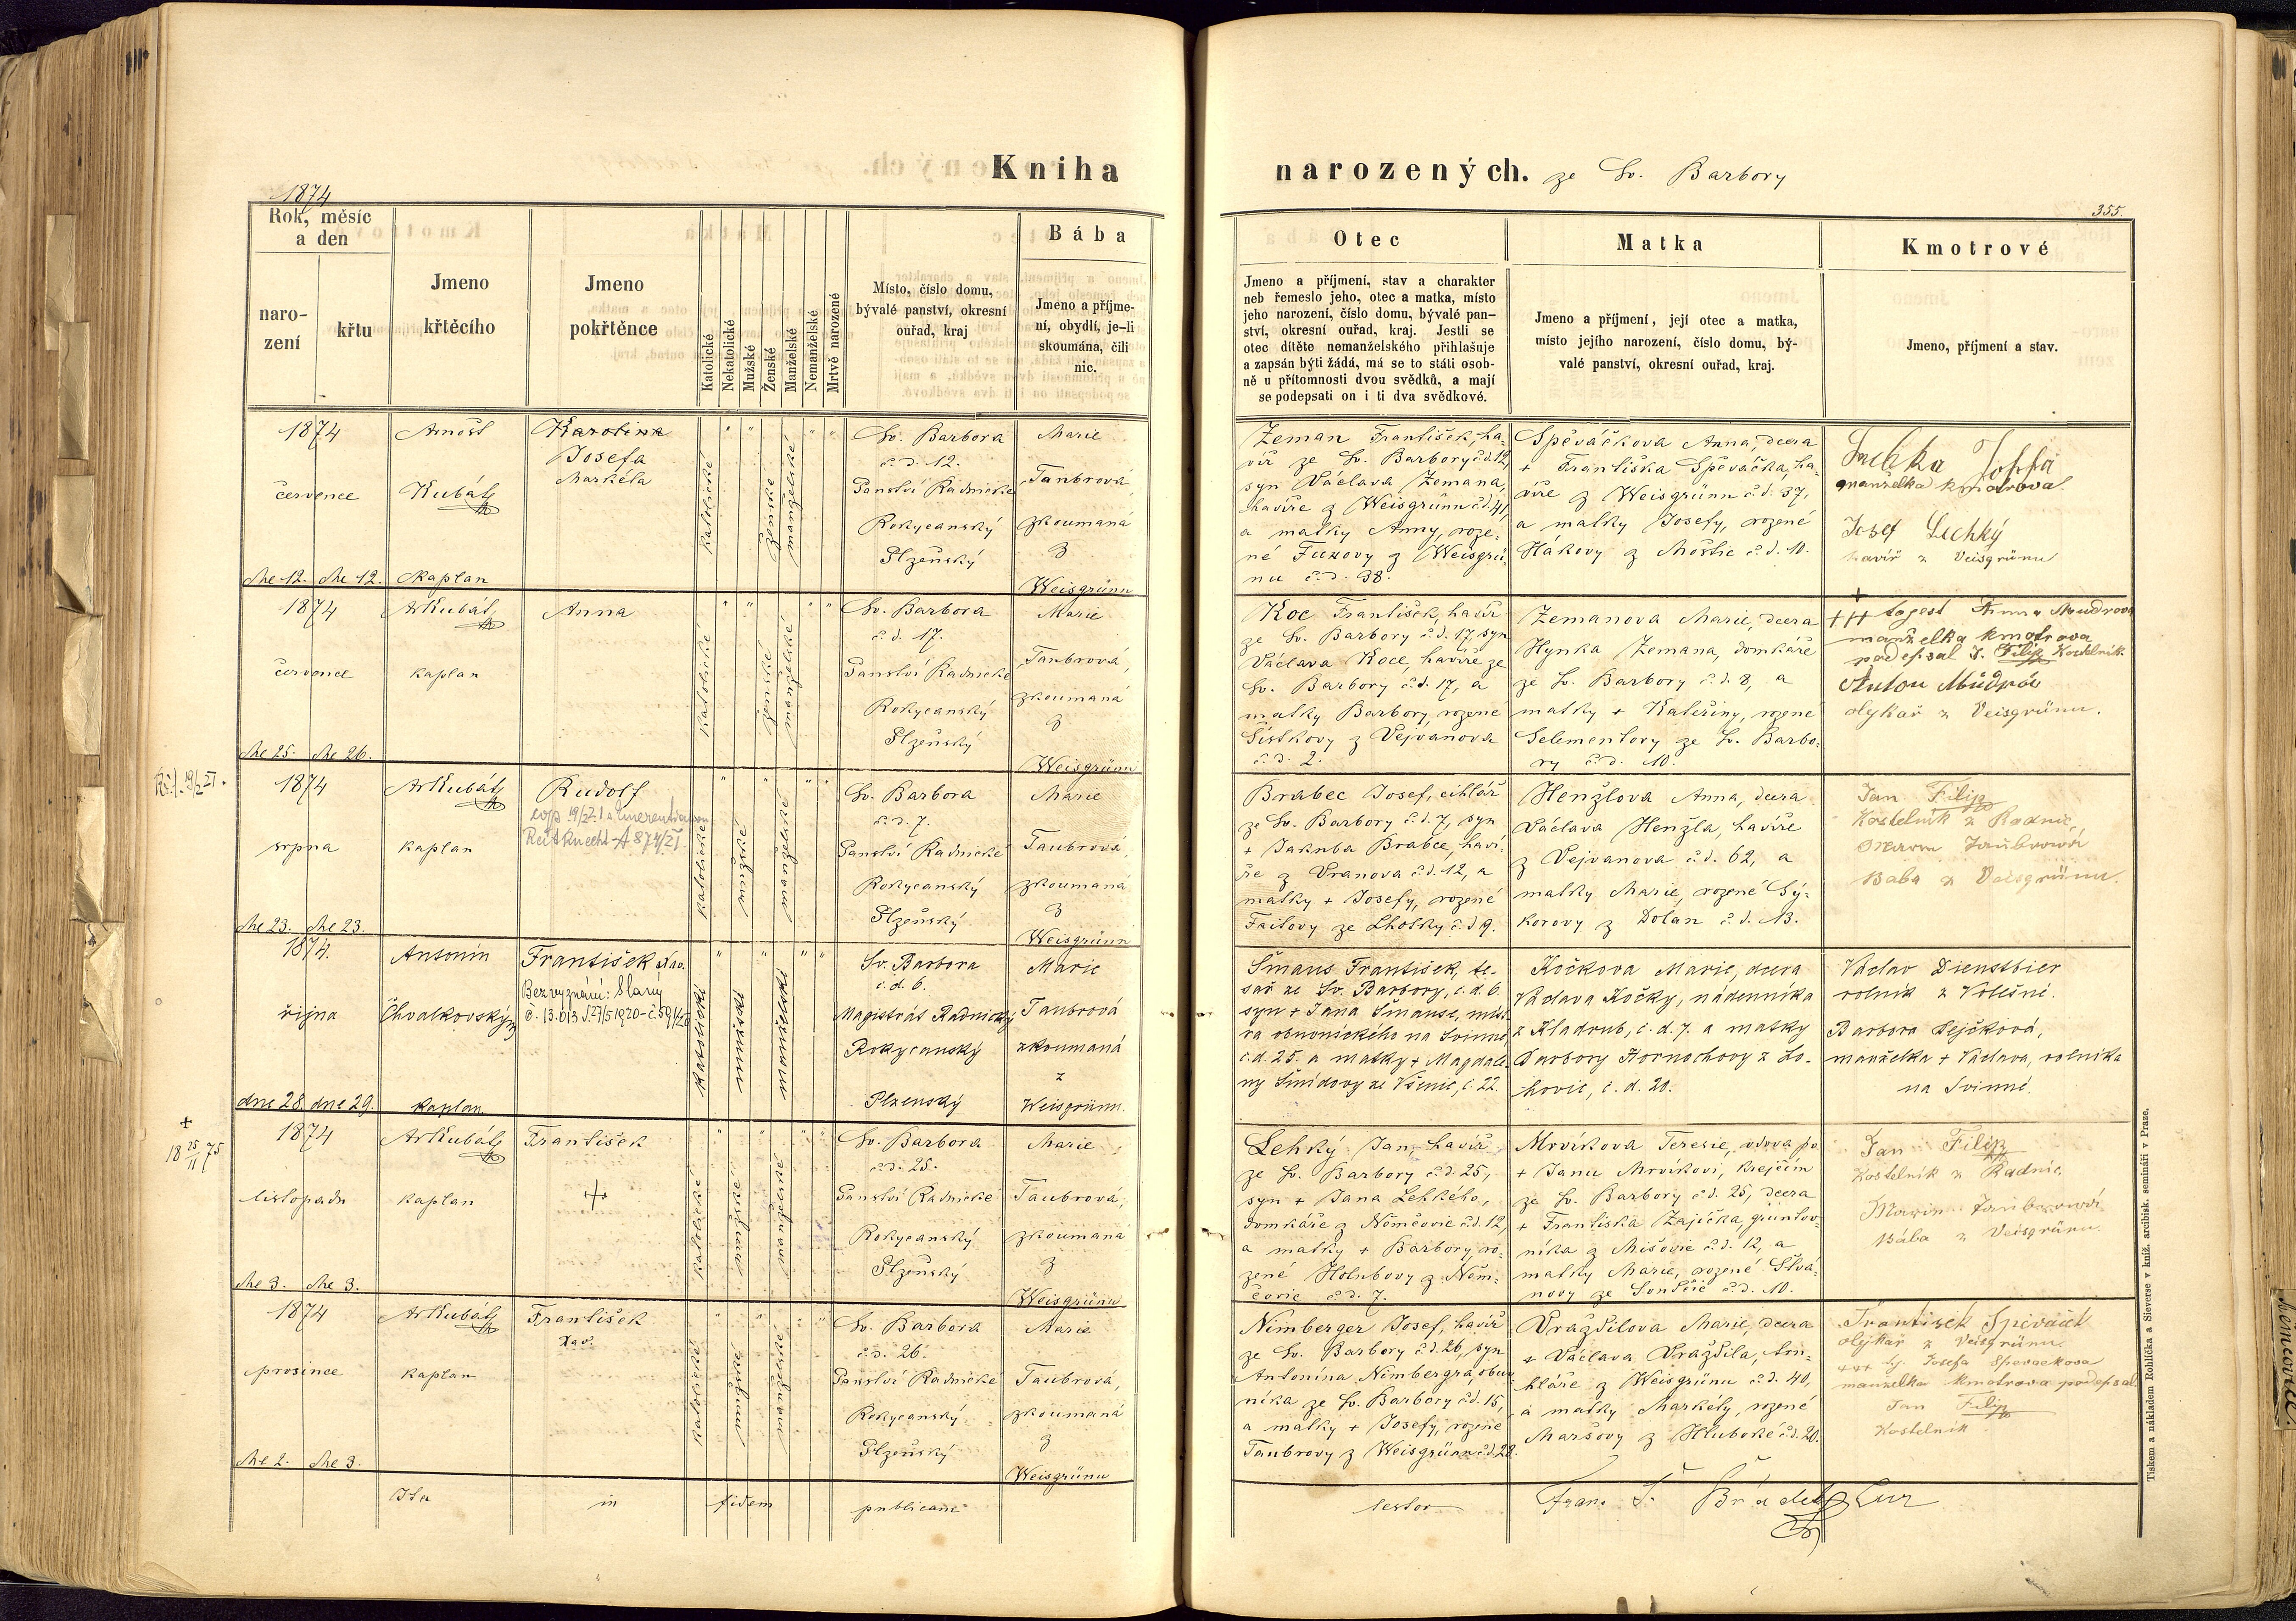 Kniha
narozených. ze Sv. Barbory
1874
355.
Rok, měsíc
a den
naro-
zení
křtu
Jmeno
křtěcího
Jmeno
pokřtěnce
Katolické
Nekatolické
Mužské
Ženské
Manželské
Nemanželské
Mrtvě narozené
Místo, číslo domu,
bývalé panství, okresní
ouřad, kraj
Bába
Jmeno a příjme-
ní, obydlí, je-li
skoumána, čili
nic.
Otec
Jmeno a příjmení, stav a charakter
neb řemeslo jeho, otec a matka, místo
jeho narození, číslo domu, bývalé pan-
ství, okresní ouřad, kraj. Jestli se
otec dítěte nemanželského přihlašuje
a zapsán býti žádá, má se to státi osob-
ně u přítomnosti dvou svědků, a mají
se podepsati on i ti dva svědkové.
Matka
Jmeno a příjmení, její otec a matka,
místo jejího narození, číslo domu, bý-
valé panství, okresní ouřad, kraj.
Kmotrové
Jmeno, příjmení a stav.
1874
července
dne 12. dne 12.
Arnošt
Kubát
kaplan
Karolina
Josefa
Markéta
katolické
ženské
manželské
Sv. Barbora
č.d. 12.
Panství Radnické
Rokycanský
Plzeňský
Marie
Taubrová,
zkoumaná
z
Weisgrünu
Zeman František, ha-
víř ze Sv. Barbory č.d. 12,
syn Václava Zemana,
havíře z Weisgrünu č.d. 41,
a matky Anny, roze-
né Fuxovy z Weisgrü-
nu č.d. 38.
Spěváčkova Anna, dcera
+ Františka Spěváčka, ha-
víře z Weisgrünu č.d. 37,
a matky Josefy, rozené
Hákovy z Moštic č.d. 10.
manželka kmotrova
Josef Lechký
havíř z Veisgrünu
1874
července
dne 25. dne 26.
Ar Kubát
kaplan
Anna
katolické
ženské
manželské
Sv. Barbora
č.d. 17.
Panství Radnické
Rokycanský
Plzeňský
Marie
Taubrová,
zkoumaná
z
Weisgrünu
Koc František, havíř
ze Sv. Barbory č.d. 17, syn
Václava Koce, havíře ze
Sv. Barbory č.d. 17, a
matky Barbory, rozené
Šístkovy z Vejvanova
č.d. 2.
Zemanova Marie, dcera
Hynka Zemana, domkáře
ze Sv. Barbory č.d. 8, a
matky + Kateřiny, rozené
Selementovy ze Sv. Barbo-
ry č.d. 10.
+++ to jest Anna Moudrova
manželka kmotrova
podepsal J. Filip Kostelník
Anton Můdrá
olejkař z Veisgrünu.
1874
srpna
dne 23. dne 23.
Ar Kubát
kaplan
Rudolf
katolické
mužské
manželské
Sv. Barbora
č.d. 7.
Panství Radnické
Rokycanský
Plzeňský
Marie
Taubrová,
zkoumaná
z
Weisgrünu
Brabec Josef, cihlář
ze Sv. Barbory č.d. 7, syn
+ Jakuba Brabce, haví-
ře z Vranova č.d. 12, a
matky + Josefy, rozené
Faitovy ze Lhotky č.d. 9.
Henžlova Anna, dcera
Václava Henžla, havíře
z Vejvanova č.d. 62, a
matky Marie, rozené Sý-
korovy z Dolan č.d. 13.
Jan Filip
Kostelník z Radnic,
Marie Taubrowá
Bába z Veisgrünu.
1874.
října
dne 28. dne 29.
Antonín
Chvalkovský
kaplan
František Xav.
Bez vyznání: Slaný
č. 13.013 27/5 1920 - č. 59/1920
katolické
mužské
manželské
Sv. Barbora
č. d. 6.
Magistrát Radnický
Rokycanský
Plzenský
Marie
Taubrová
zkoumaná
z
Weisgrünu.
Šmaus František, te-
sař ze Sv. Barbory, č.d. 6.
syn + Jana Šmause, mist-
ra obuvnického na Svinné
č.d. 25. a matky + Magdale-
ny Šmídovy ze Všenic, č. 22.
Kočkova Marie, dcera
Václava Kočky, nádenníka
z Kladrub, č. d. 7. a matky
Barbory Hornochovy z Lo-
hovic, č. d. 20.
Václav Dienstbier
rolník z Volešné.
Barbora Pejčková,
manželka + Václava, rolníka
na Svinné.
+
18 25/11 75
1874
listopadu
dne 3. dne 3.
Ar Kubát
kaplan
František
katolické
mužské
manželské
Sv. Barbora
č.d. 25.
Panství Radnické
Rokycanský
Plzeňský
Marie
Taubrová,
zkoumaná
z
Weisgrünu
Lehký Jan, havíř
ze Sv. Barbory č.d. 25,
syn + Jana Lehkého,
domkáře z Němčovic č.d. 12,
a matky + Barbory, ro-
zené Holubovy z Něm-
čovic č.d. 7.
Mrvíkova Terezie, vdova po
+ Janu Mrvíkovi, krejčím
ze Sv. Barbory č.d. 25, dcera
+ Františka Zajíčka, gruntov-
níka z Mišovic č.d. 12, a
matky Marie, rozené Slvá-
novy ze Lončic č.d. 10.
Jan Filip
Kostelník z Radnic.
Marie Taubrowá
Bába z Veisgrünu.
1874
prosince
dne 2. dne 3.
Ar Kubát
kaplan
František
Xav.
katolické
mužské
manželské
Sv. Barbora
č.d. 26.
Panství Radnické
Rokycanský
Plzeňský
Marie
Taubrová,
zkoumaná
z
Weisgrünu
Nimberger Josef, havíř
ze Sv. Barbory č.d. 26, syn
Antonína Nimbergra, obuv-
níka ze Sv. Barbory č.d. 15,
a matky + Josefy, rozené
Taubrovy z Weisgrünu č.d. 28.
Vraždilova Marie, dcera
+ Václava Vraždila, tru-
hláře z Weisgrünu č.d. 40,
a matky Markéty, rozené
Maršovy z Hluboké č.d. 20.
František Spěváček
olejkař z Veisgrünu
+++ tj Josefa Spěvačkova
manželka kmotrova podepsal
Jan Filip
Kostelník
Ita in fidem publicam
testor Franc. Š.
Tiskem a nákladem Rohlíčka a Sieverse v kníž. arcibisk. semináři v Praze.